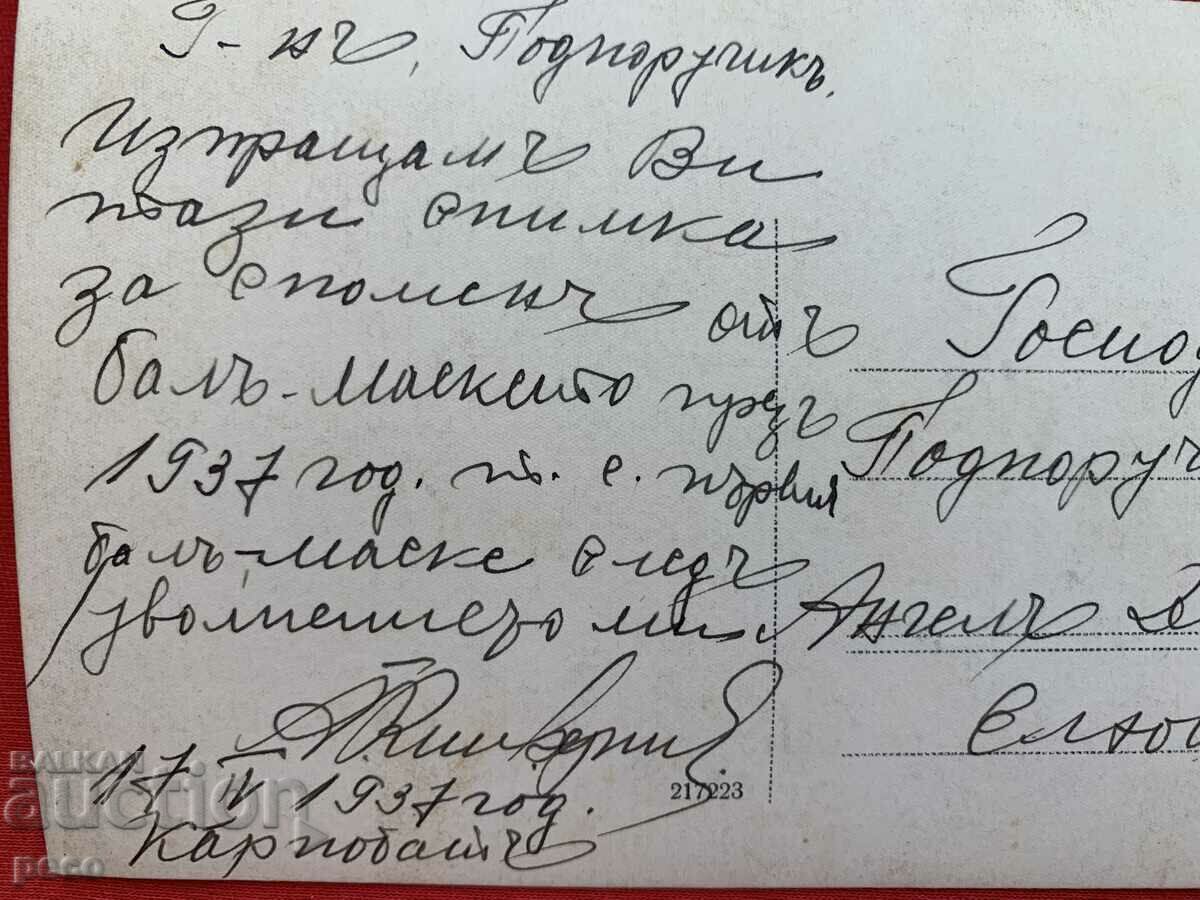 Г-нъ, Подпоручикъ,
Изпращамъ Ви
тази снимка
за споменъ отъ
балъ-маскето презъ
1937 год. т. е. първия
балъ-маске следъ
уволнението ми.
17 IV 1937 год.
Карнобатъ
Господ
Подпоруч
Ангелъ
Елхо
217223
BALKAN
auction
peco